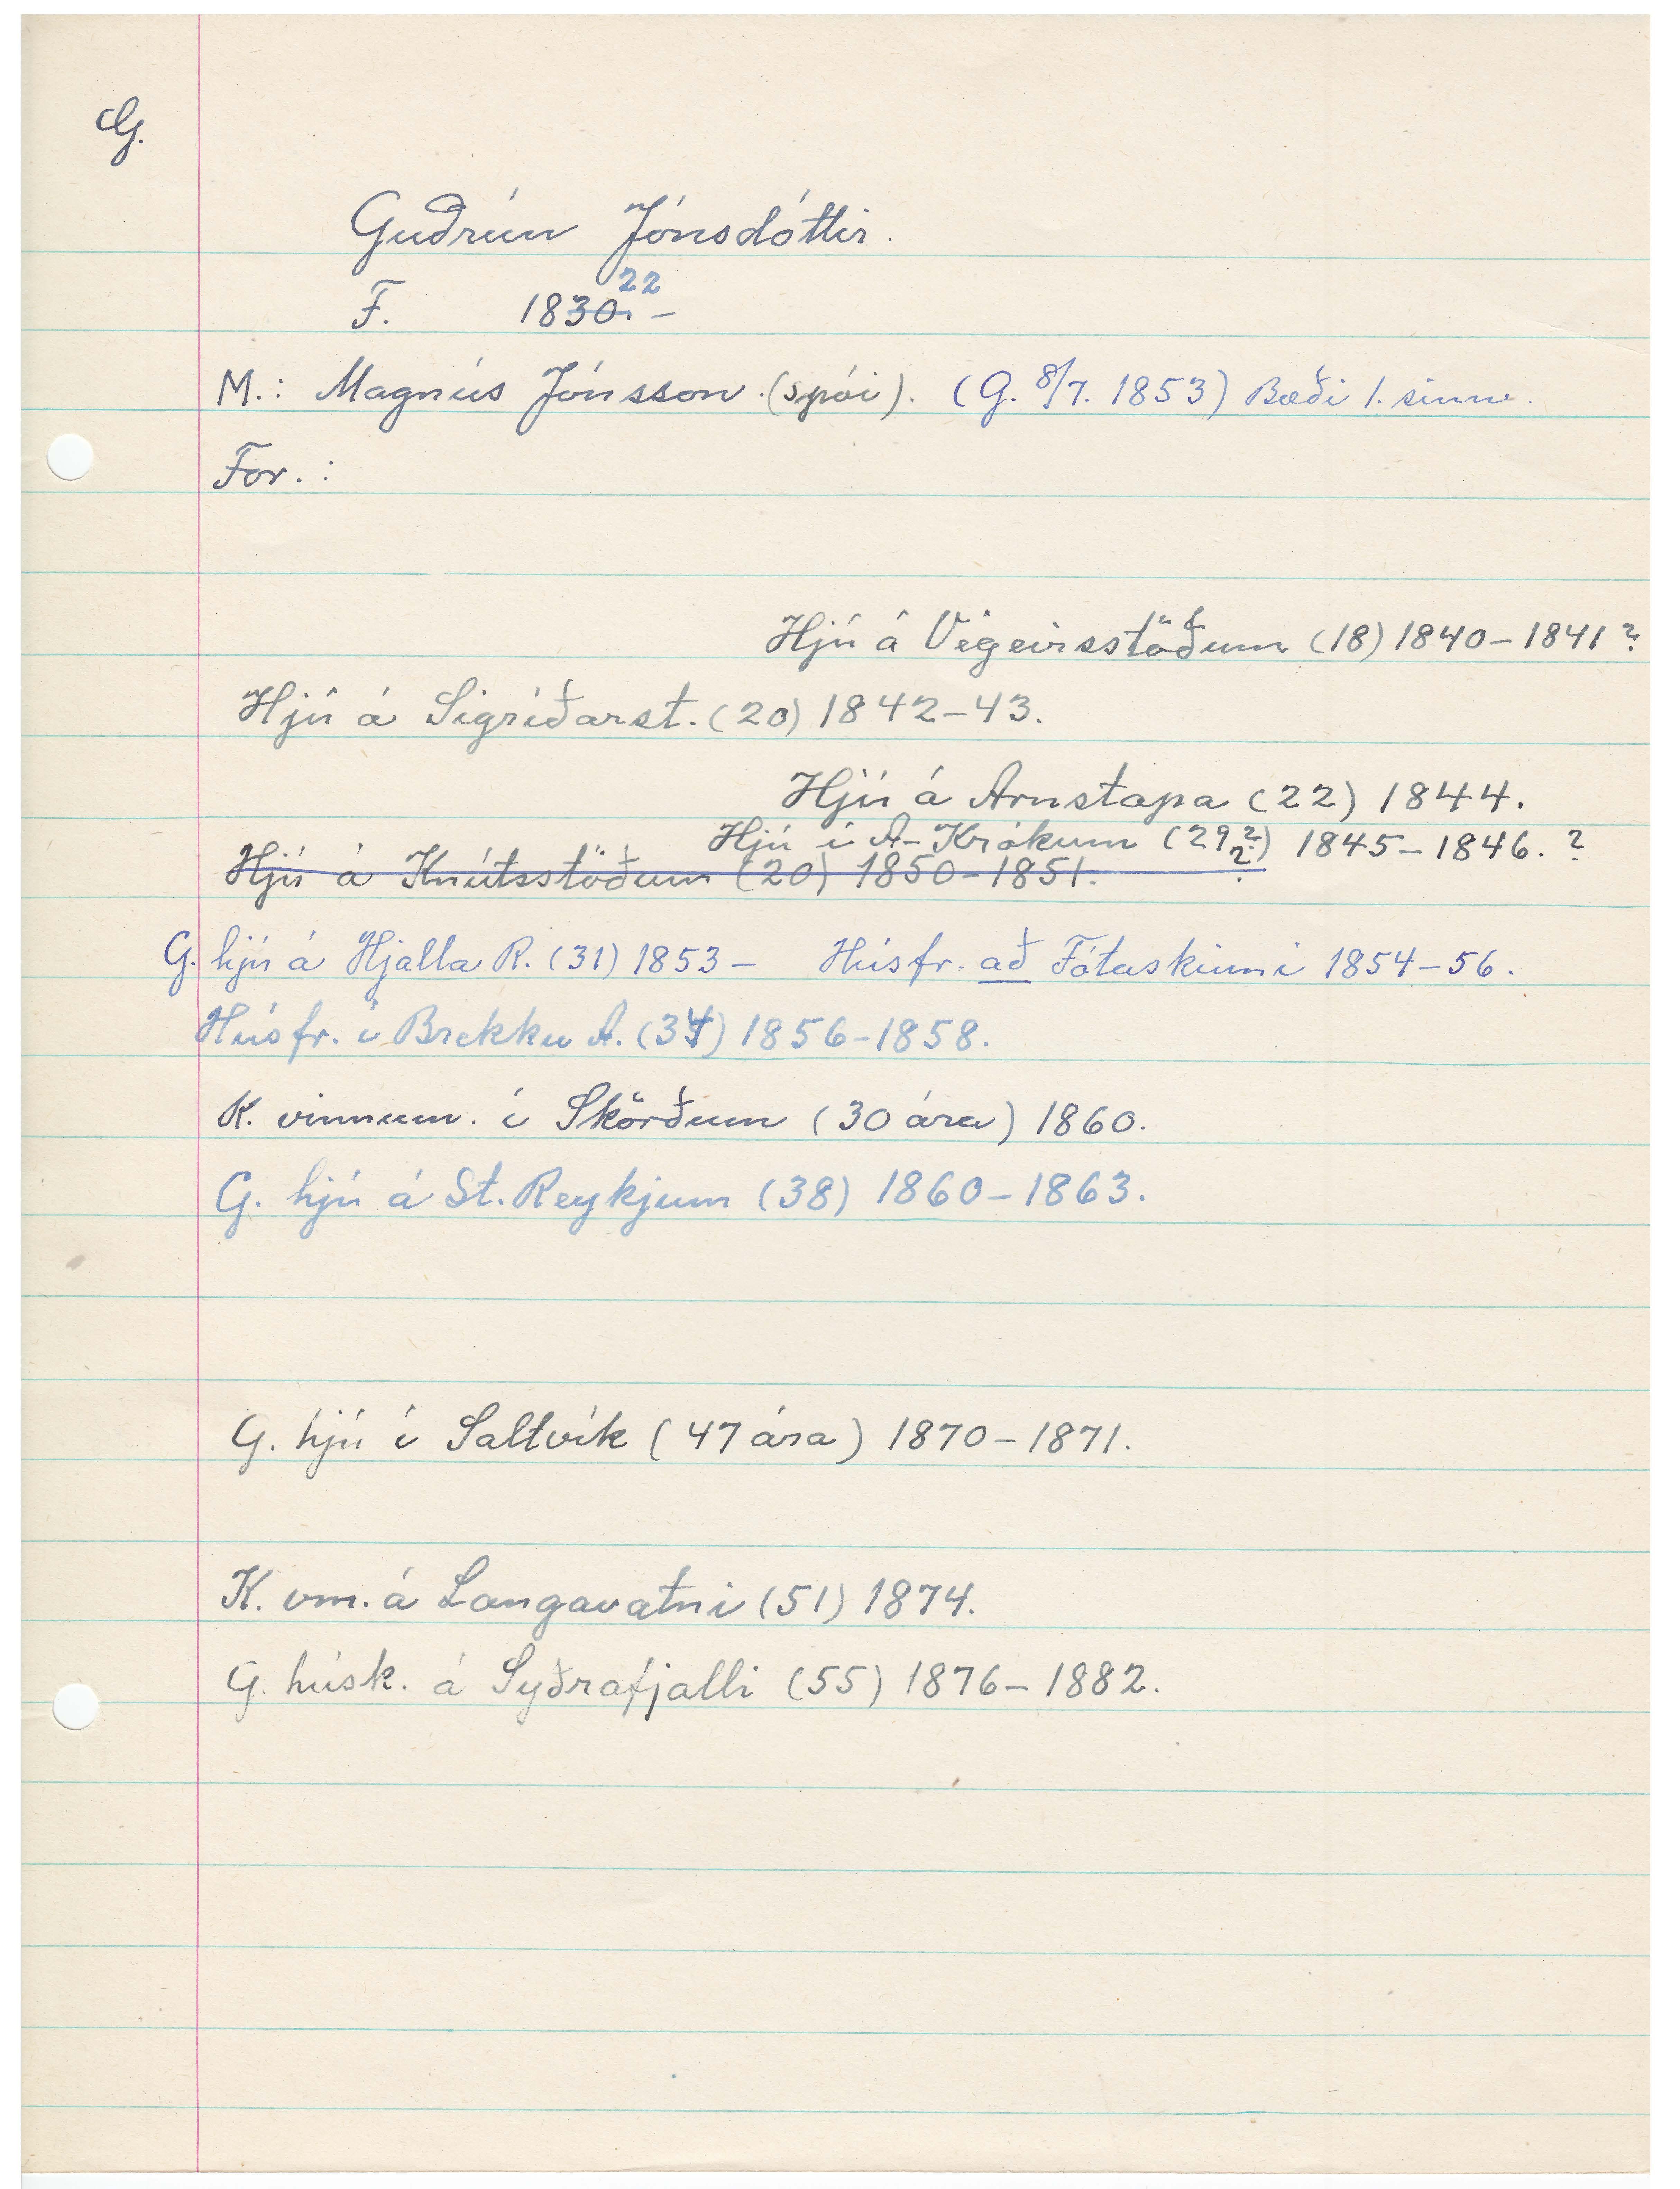 G.
Guðrún Jónsdóttir.
22
F. 1830. –
M.: Magnús Jónsson. (spói). (G. 8/7. 1853) Bæði 1. sinn.
For. :
Hjú á Végeirsstöðum (18) 1840–1841?
Hjú á Sigríðarst. (20) 1842–43.
Hjú á Arnstapa (22) 1844.
Hjú í A-Krókum (29??) 1845–1846. ?
Hjú á Knútsstöðum (20) 1850–1851. ?
G. hjú á Hjalla R. (31) 1853 – Húsfr. að Fótaskinni 1854–56.
Húsfr. í Brekku A. (34) 1856–1858.
K. vinnum. í Skörðum (30 ára) 1860.
G. hjú á St. Reykjum (38) 1860–1863.
G. hjú í Saltvík (47 ára) 1870–1871.
K. vm. á Langavatni (51) 1874.
G. húsk. á Syðrafjalli (55) 1876–1882.